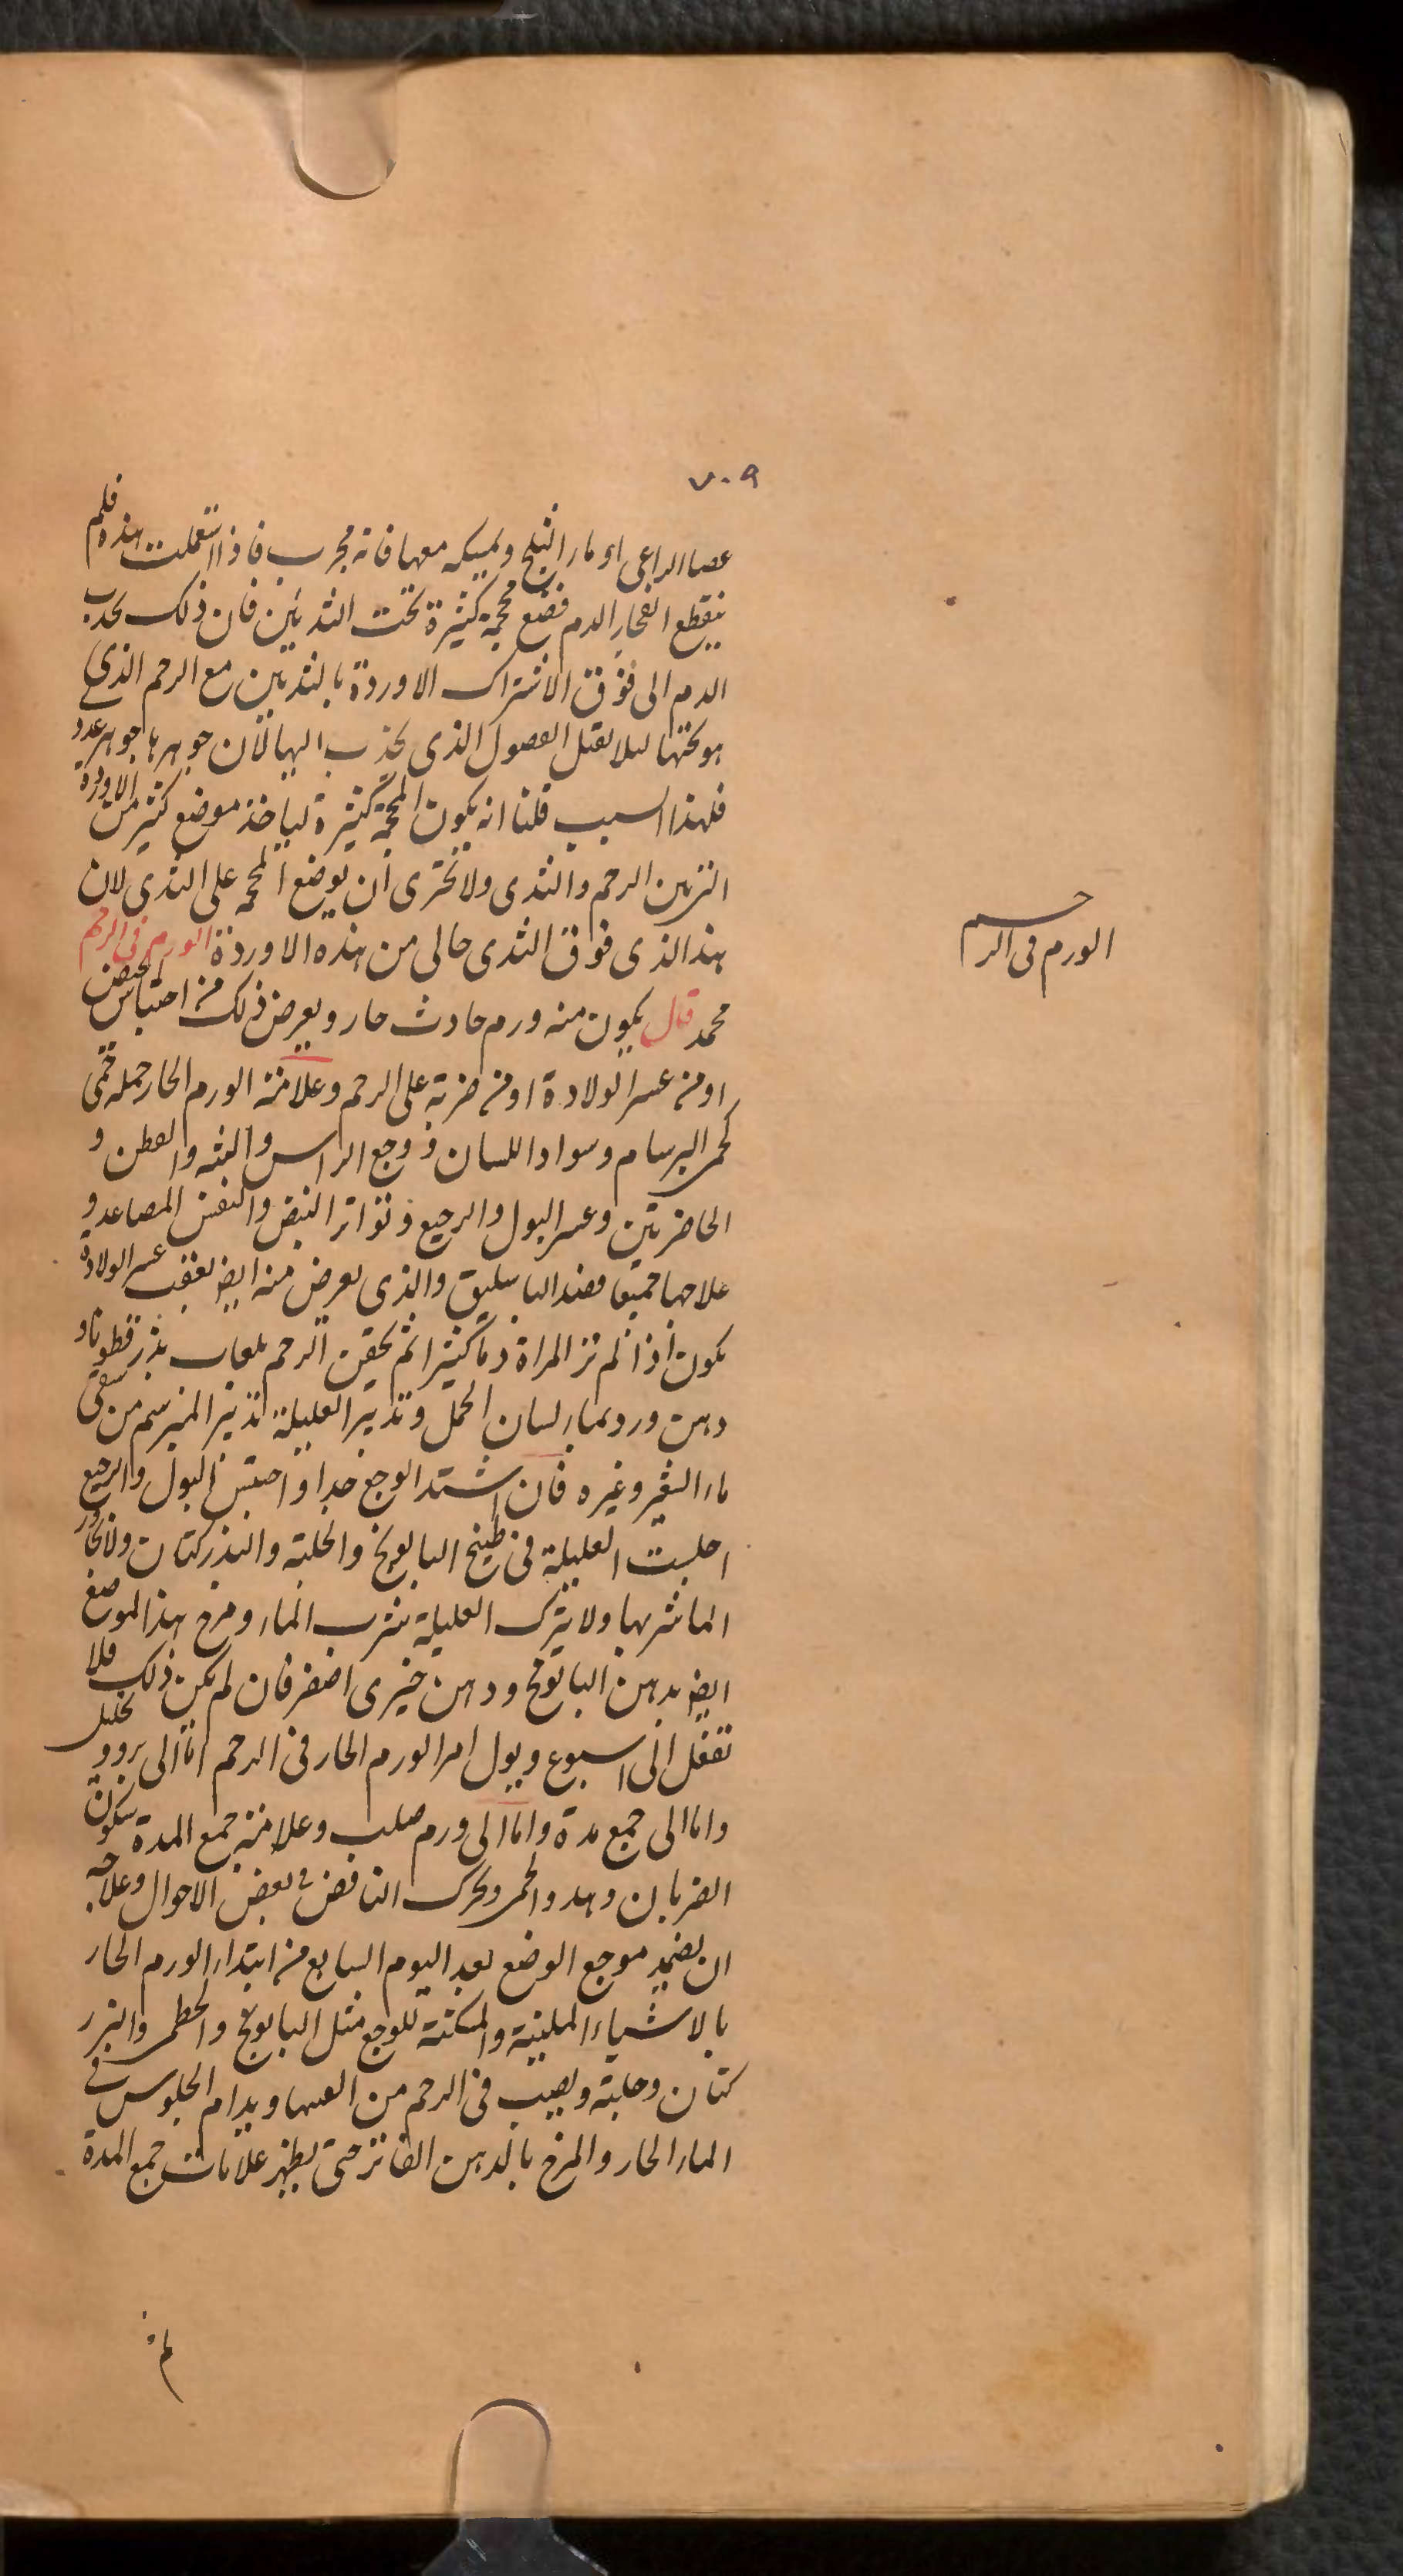 ٧٠٩
عصا الراعى او ماء الثلج ويمسكه معها فانه مجرب فاذا استعملت هذه فلم
ينقطع انفجار الدم فضع محجمة كثيرة تحت الثديين فان ذلك يجذب
الدم الى فوق لاشتراك الاوردة بالثديين مع الرحم الذى
هو تحتها ليلا يقبل الفصول الذى يجذب اليها لان جوهرها جوهر غدد
فلهذا السبب قلنا انه يكون المحجمة كثيرة لياخذ موضع كثير من الاوردة
التى بين الرحم والثدى ولا تحترى ان يوضع المحجمة على الثدى لان
هذا الذى فوق الثدى خالى من هذه الاوردة الورم فى الرحم
الورم فى الرحم
محمد قال يكون منه ورم حادث حار ويعرض ذلك من احتباس الحيض
او من عسر الولادة او من ضربة على الرحم وعلامة الورم الحار جمله حمى
كحمى البرسام وسواد اللسان ووجع الراس والثنه والعطن و
الحاضرتين وعسر البول والرجيع وتواتر النبض والنفس المصاعد و
علاجها جميعا فصد الباسليق والذى يعرض منه ايض بعقب عسر الولادة
يكون اذا لم تر المراة دما كثيرا ثم يحقن الرحم بلعاب بذر قطونا و
دهن ورد بماء لسان الحمل وتدبير العليلة تدبير المبرسم من سقى
ماء الشعير وغيره فان اشتد الوجع جدا واحتبس البول والرجيع
اجلست العليلة فى طبيخ البابونج والحلبة والبذر كتان ولا
الماء شربها ولا يترك العليلة شرب الماء ومرخ هذا الموضع
ايض بدهن البابونج ودهن خيرى اصفر فان لم يكن ذلك فلا
تغفل الى اسبوع ويول امر الورم الحار فى الرحم اما الى برو و تحليل
واما الى جمع مدة واما الى ورم صلب وعلامة جمع المدة سكون
الضربان وهدو الحمى وتحرك النافض فى بعض الاحوال وعلاجه
ان يضمد موجع الوضع بعد اليوم السابع من ابتداء الورم الحار
بالاشياء الملينة والمسكنة للوجع مثل البابونج والخطمى والبزر
كتان وحلبة ويصيب فى الرحم من العسها ويدام الجلوس فى
الماء الحار والمرخ بالدهن الفاتر حتى يظهر علامات جمع المدة